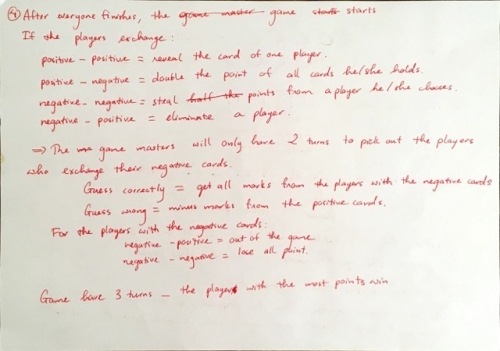 ④ After everyone finishes, the game master game starts starts
If the players exchange:
positive - positive = reveal the card of one player.
positive - negative = double the point of all cards he/she holds.
negative - negative = steal half the points from a player he/she choses.
negative - positive = eliminate a player.
⇒ The game masters will only have 2 turns to pick out the players
who exchange their negative cards.
Guess correctly = get all marks from the players with the negative cards
Guess wrong = minus marks from the positive cards.
For the players with the negative cards:
negative - positive = out of the game
negative - negative = lose all point.
Game have 3 turns - the player with the most points win